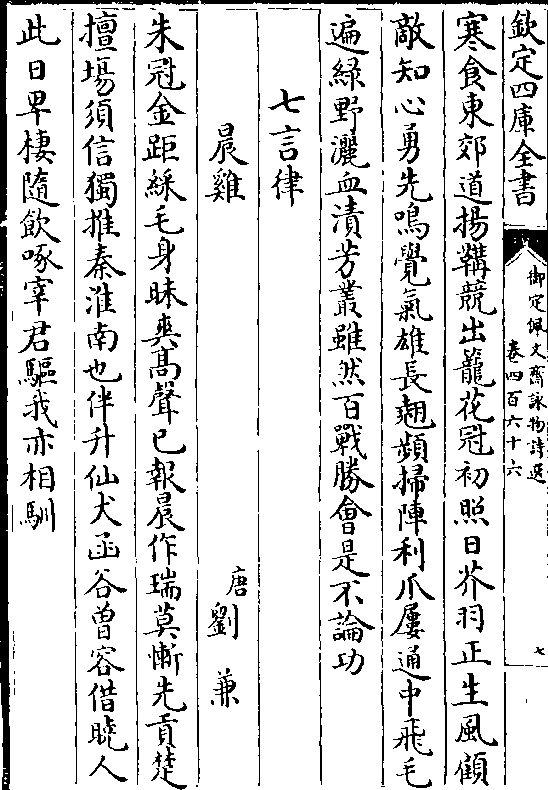 欽定四庫全書
御定佩文齋詠物詩選
卷四百六十六
七
寒食東郊道揚鞲競出籠花冠初照日芥羽正生風顧
敵知心勇先鳴覺氣雄長翹頻掃陣利爪屢通中飛毛
遍綠野灑血漬芳叢雖然百戰勝會是不論功
七言律
晨雞
唐劉兼
朱冠金距綵毛身昧爽高聲已報晨作瑞莫慚先貢楚
擅塲須信獨推秦淮南也伴升仙犬函谷曾容借曉人
此日卑棲隨飲啄宰君驅我亦相馴